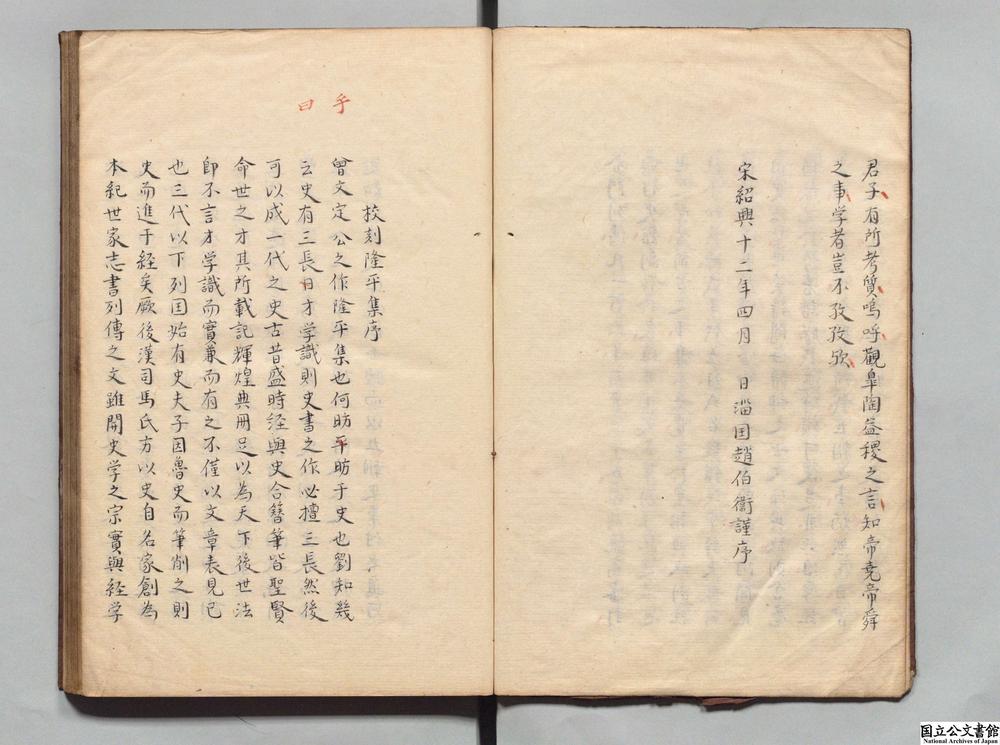 君子有所考質嗚呼觀皐陶益稷之言知帝尭帝舜
之事学者豈不孜孜欤
宋紹興十二年四月　日淄国趙伯衛謹序
校刻隆平集序
乎
曰
曾文定公之作隆平集也何昉平昉于史也劉知幾
云史有三長日才学識則史書之作必擅三長然後
可以成一代之史古昔盛時経與史合簪筆皆聖賢
命世之才其所載記輝煌典冊足以為天下後世法
即不言才学識而實兼而有之不僅以文章表見已
也三代以下列国始有史夫子因魯史而筆削之則
史而進于経矣厥後漢司馬氏方以史自名家創為
本紀世家志書列傳之文雖開史学之宗實與経学
国立公文書館
National Archives of Japan